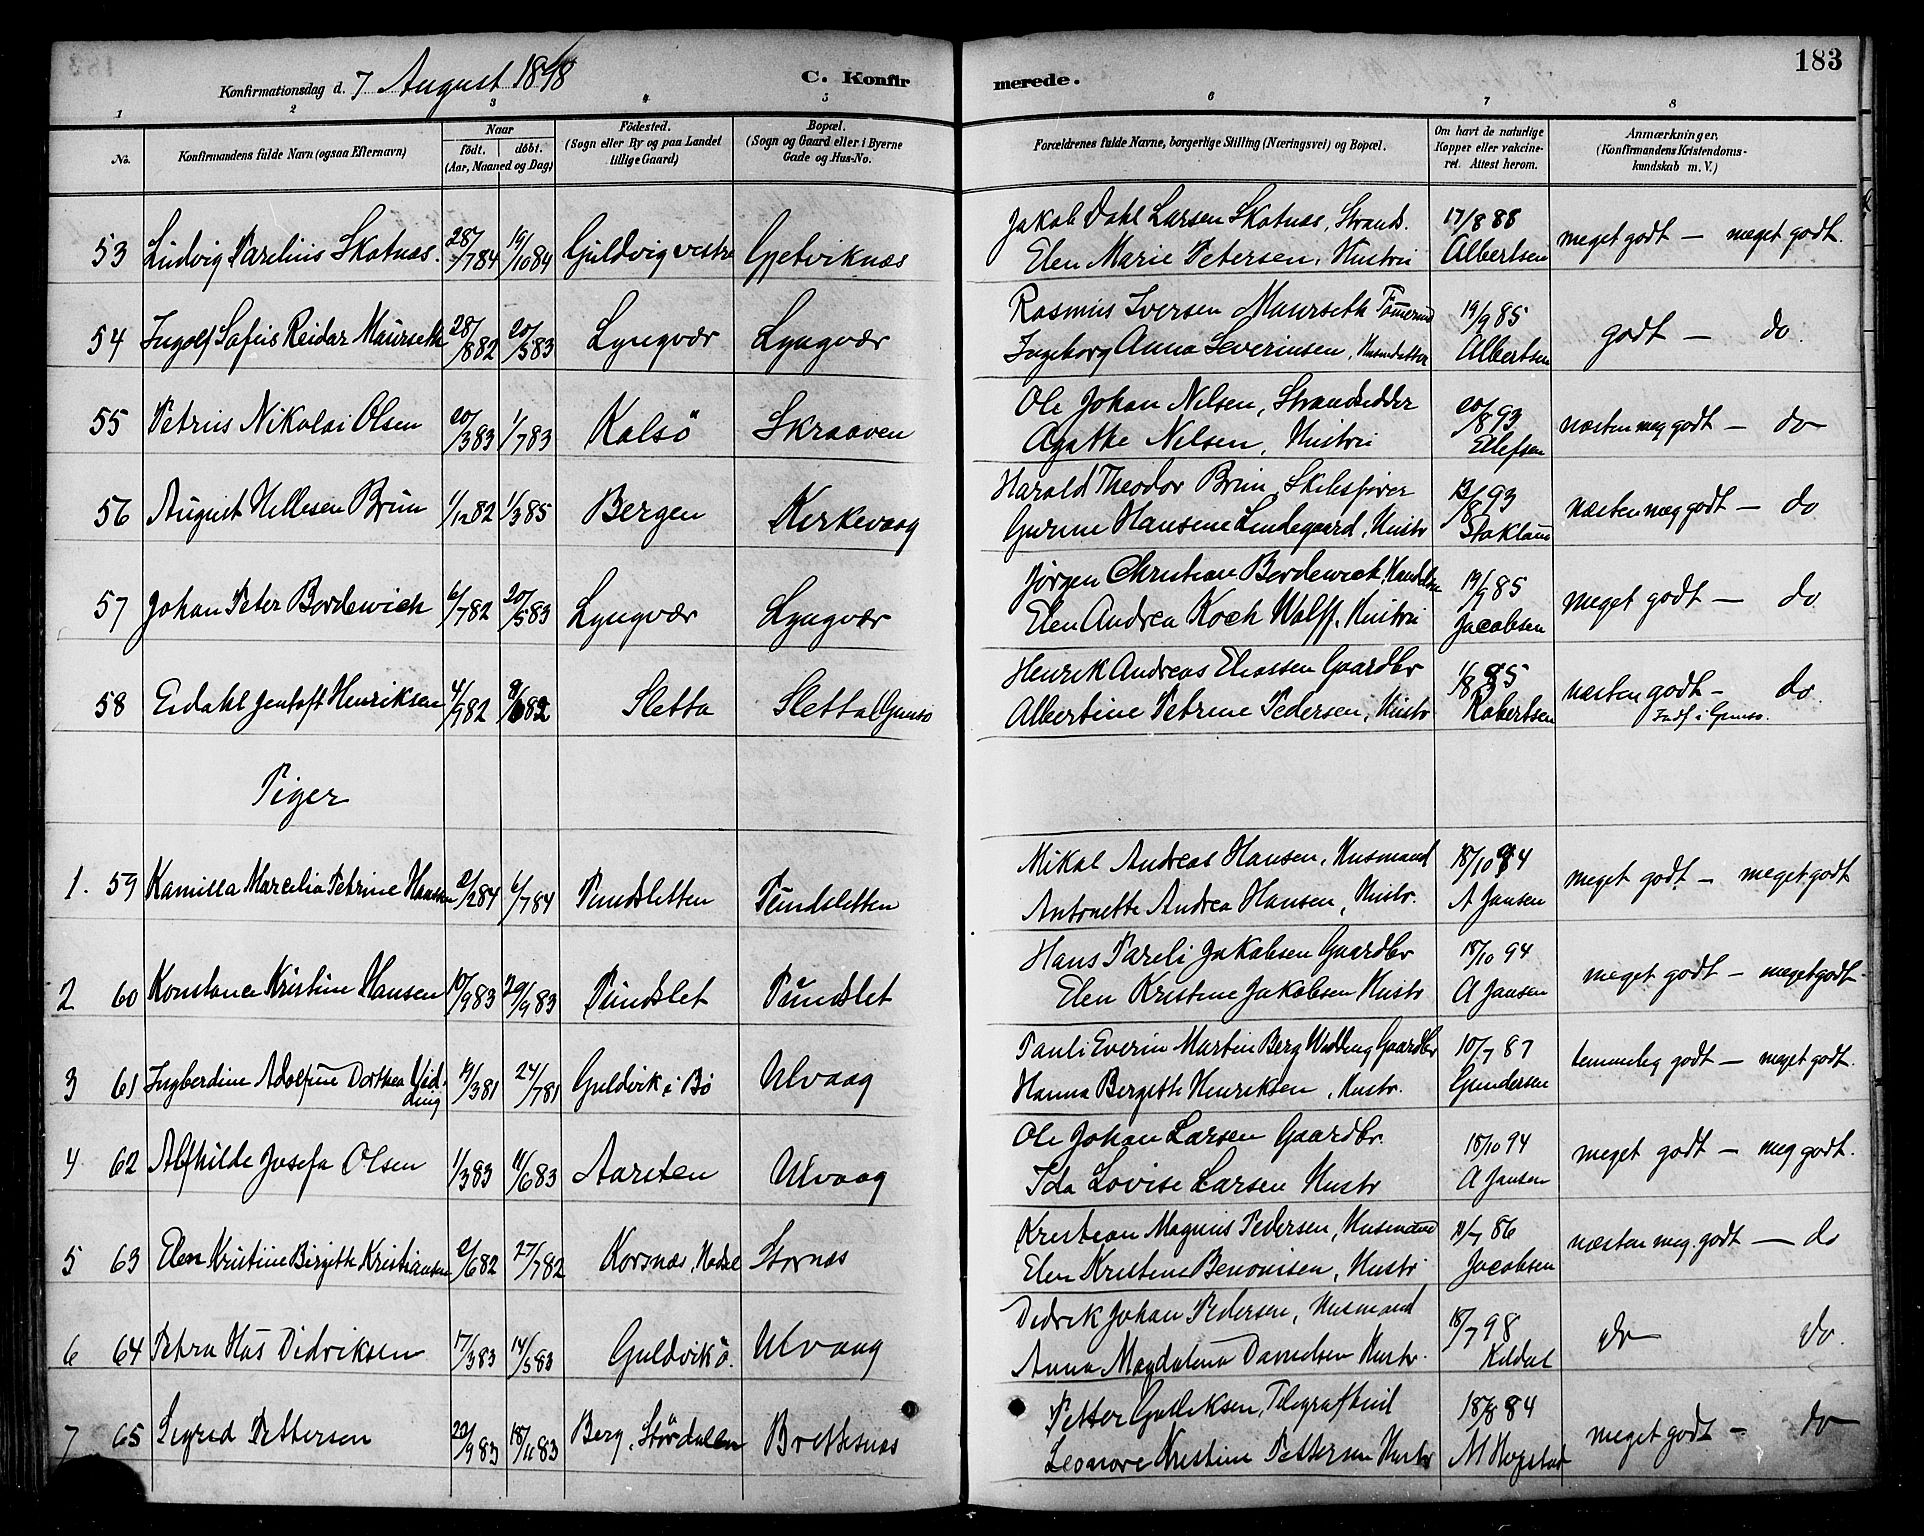 183
Konfirmationsdag d. 7 August 1898 C. Konfirmerede.
1 2 3 4 5 6 7 8
No. Konfirmandens fulde Navn (ogsaa Efternavn) Naar födt. döbt. (Aar, Maaned og Dag) Födested. (Sogn eller By og paa Landet tillige Gaard) Bopæl. (Sogn og Gaard eller i Byerne Gade og Hus-No. Forældrenes fulde Navne, borgerlige Stilling (Næringsvei) og Bopæl. Om havt de naturlige Kopper eller vakcineret. Attest herom. Anmærkninger, (Konfirmandens Kristendomskundskab m. V.)
53 Ludvig Parelius Skotnæs. 28/7 84 19/10 84 Guldvig vestre Gjetviknæs Jakob Dahl Larsen Skotnæs, Strands. 17/8 88 meget godt – meget godt.
Elen Marie Petersen, Hustru Albertsen
54 Ingolf Sofus Reidar Maurseth 28/8 82 20/5 83 Lyngvær Lyngvær Rasmus Iversen Maurseth 19/9 85 godt – do.
Ingeborg Anna Severinsen, Albertsen
55 Petrus Nikolai Olsen 20/3 83 1/7 83 Kalsö Skraaven Ole Johan Nelsen, Strandsidder 20/8 93 næsten meg godt – do
Agathe Nelsen, Hustru Ellefsen
56 August Hellesen Brun 1/12 82 1/3 85 Bergen Kirkevaag Harald Theodor Brun, Skibsfører /8 93 næsten meg godt – do
Gurine Hansene Lindegaard, Hustr
57 Johan Peter Bordewich 6/7 82 20/5 83 Lyngvær Lyngvær Jørgen Christian Bordewich, 19/9 85 meget godt – do.
Elen Andrea Koch Wolff, Hustru Jacobsen
58 Endahl Jentoft Henriksen 4/9 82 8/6 82 Sletta Sletta (Gimsö Henrik Andreas Eliassen Gaardbr 1/8 85 næsten godt – do.
Albertine Petrine Pedersen, Hustr Robertsen Indf. i Gimsö.
Piger
1. 59 Kamilla Marcelia Petrine Hansen 2/2 84 6/7 84 Pundsletten Pundsletten Mikal Andreas Hansen, Husmand 18/10 94 meget godt – meget godt
Antonette Andrea Hansen, Hustr. A Jansen
2 60 Konstance Kristine Hansen 10/9 83 29/9 83 Pundslet Pundslet Hans Pareli Jakobsen Gaardbr 18/10 94 meget godt – meget godt.
Elen Kristine Jakobsen Hustr A Jansen
3 61 Ingberdine Adolfine Dorthea Widding 19/3 81 24/7 81 Guldvik i Bö Ulvaag Pauli Everin Martin Berg Widding Gaardbr 10/7 87 temmelig godt – meget godt.
Hanna Bergitte Henriksen, Hustr. Gundersen
4 62 Alfhilde Josefa Olsen 1/3 83 11/6 83 Aarsten Ulvaag Ole Johan Larsen Gaardbr. 18/10 94 meget godt – meg godt.
Ida Lovise Larsen Hustr A Jansen
5 63 Elen Kristine Birgitte Kristiansen 2/6 82 27/7 82 Korsnæs, Hadsel Stornæs Kristian Magnus Pedersen, Husmand 11/7 86 næsten meg. godt – do
Elen Kristine Benonisen, Hustr Jacobsen
6 64 Petra Has Didriksen 17/3 83 14/5 83 Guldvik ö. Ulvaag Didrik Johan Pedersen, Husmand 18/7 98 do do.
Anna Magdalena Danielsen Hustr. Kildal
7 65 Sigrid Pettersen 20/9 83 18/11 83 Berg, Stördalen Brettesnæs Petter Gudiksen, 18/8 84 meget godt – do
Leonore Kristine Pettersen Hustr M Hogstad